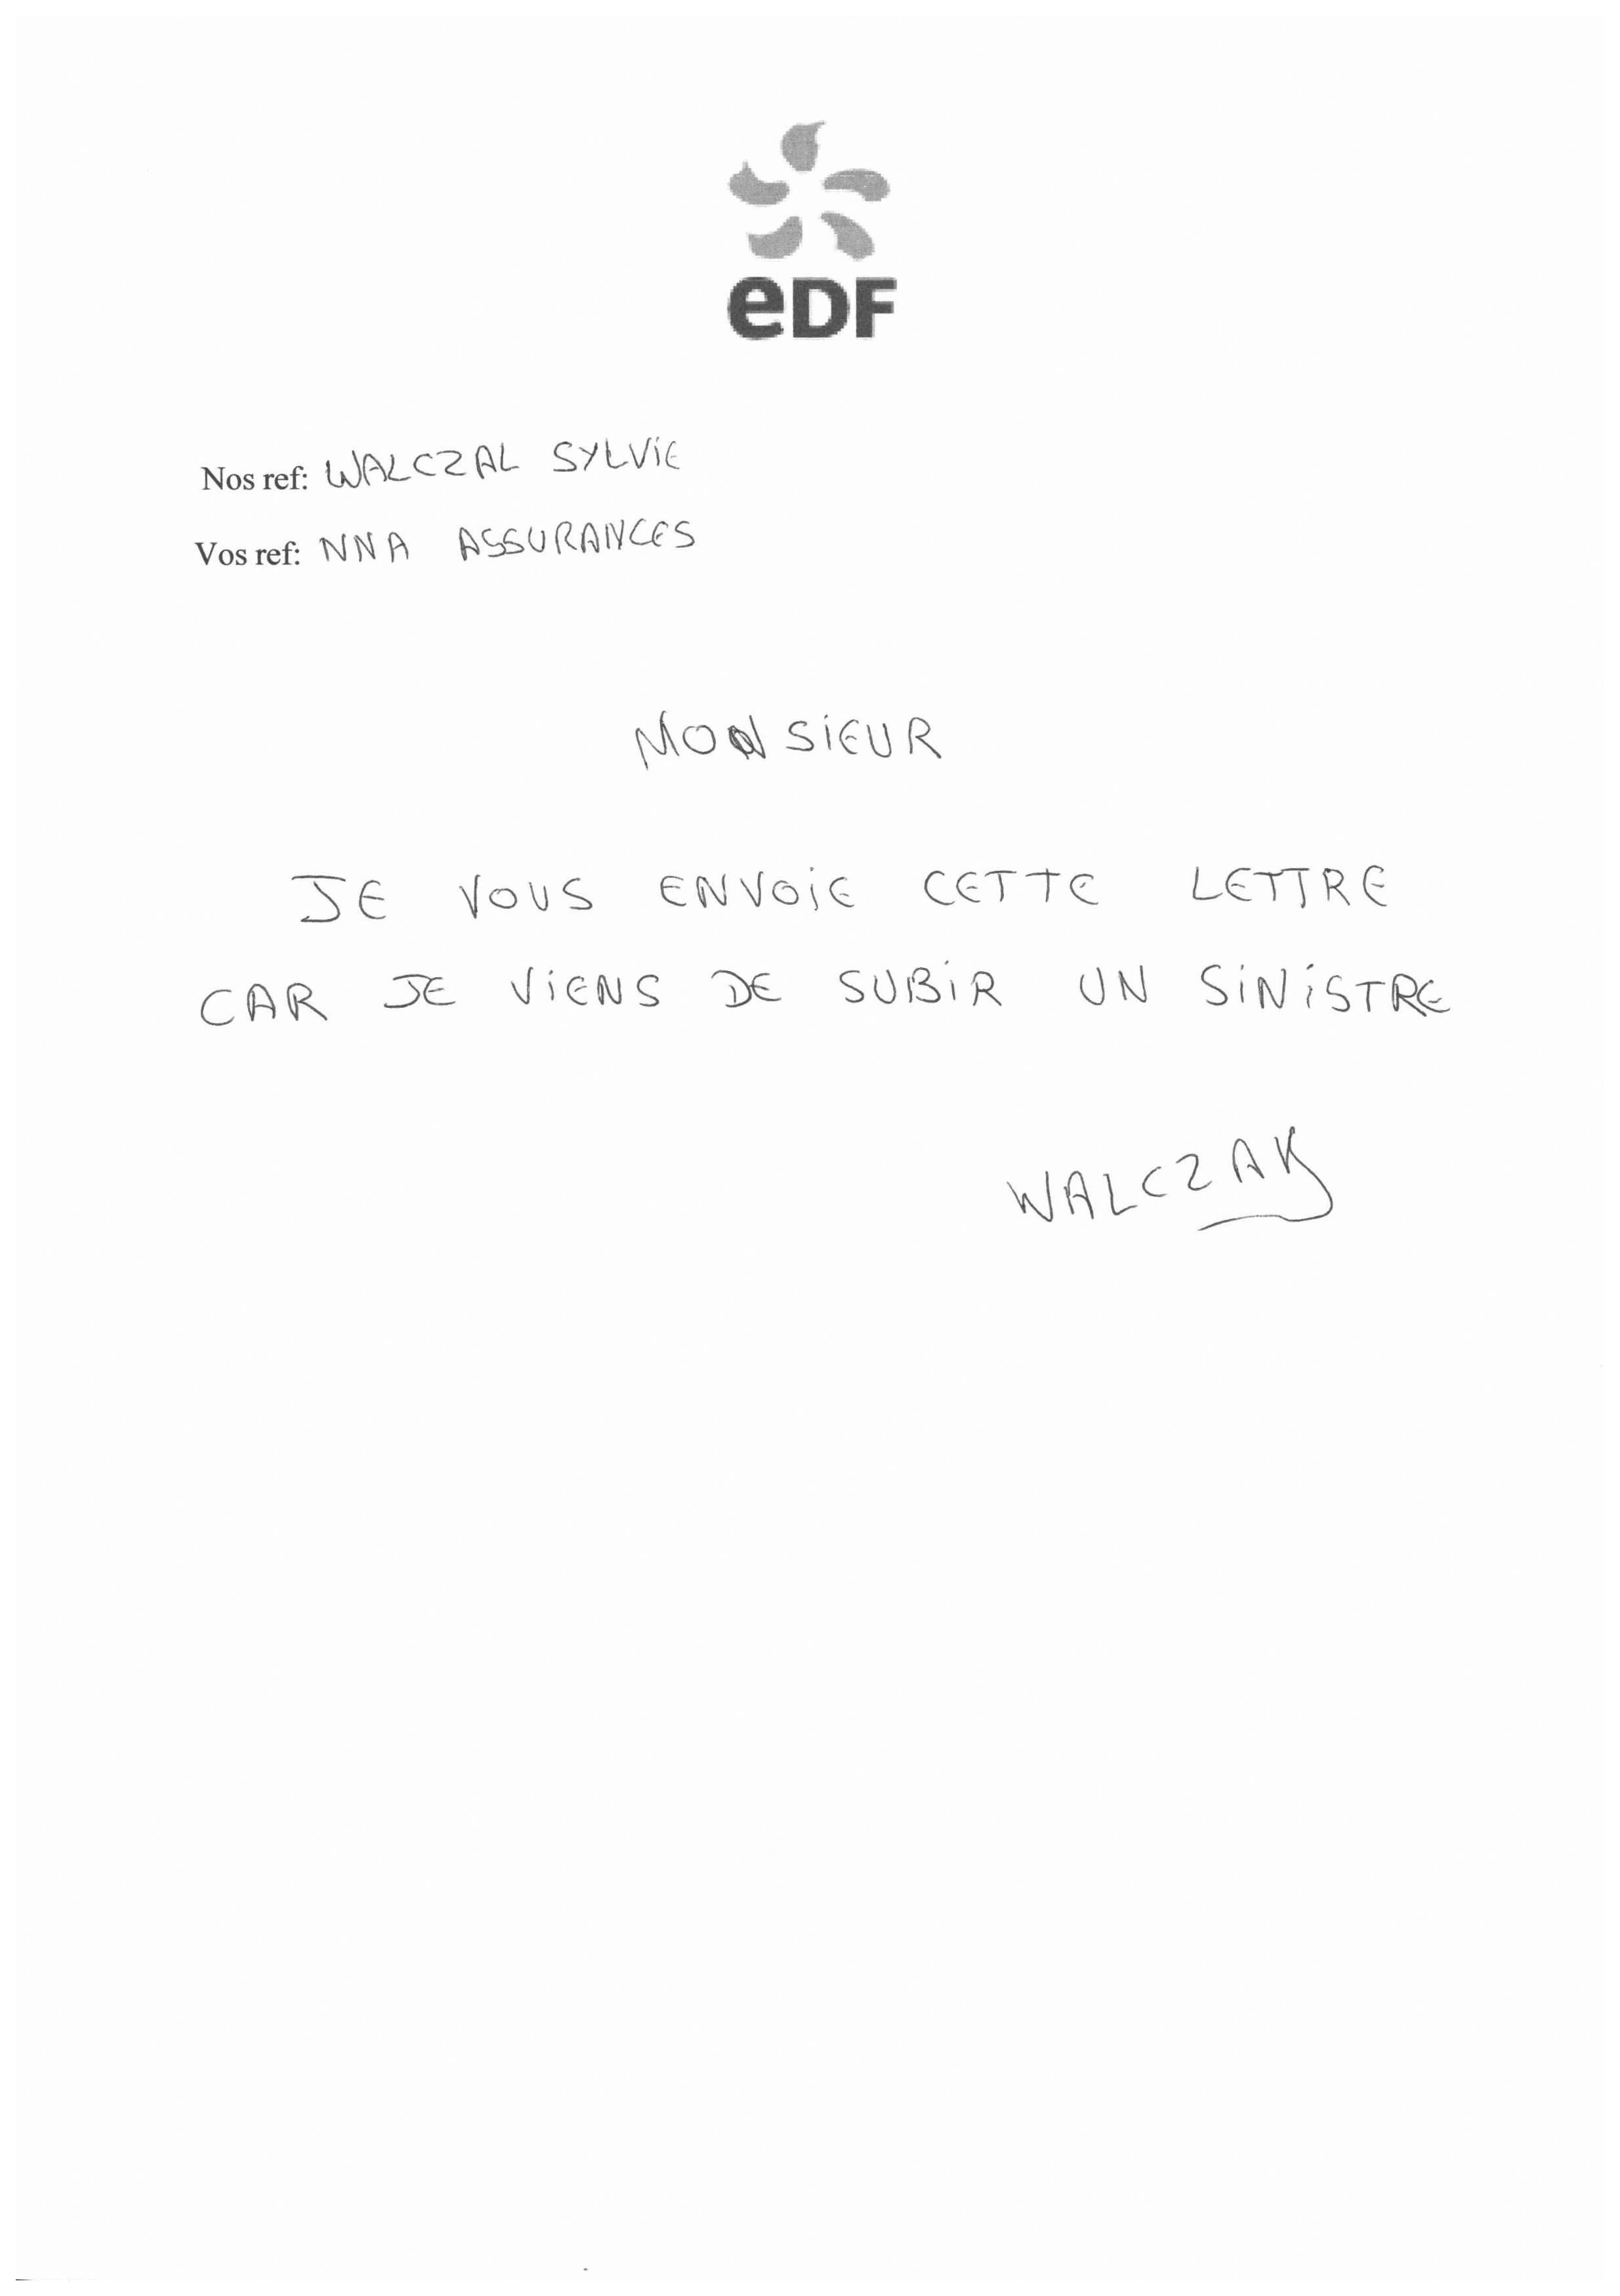 eDF
Nos ref: WALCZAL SYLVIE
Vos ref: NNA ASSURANCES
MONSIEUR
JE VOUS ENVOIE CETTE LETTRE
CAR JE VIENS DE SUBIR UN SINISTRE
WALCZAK